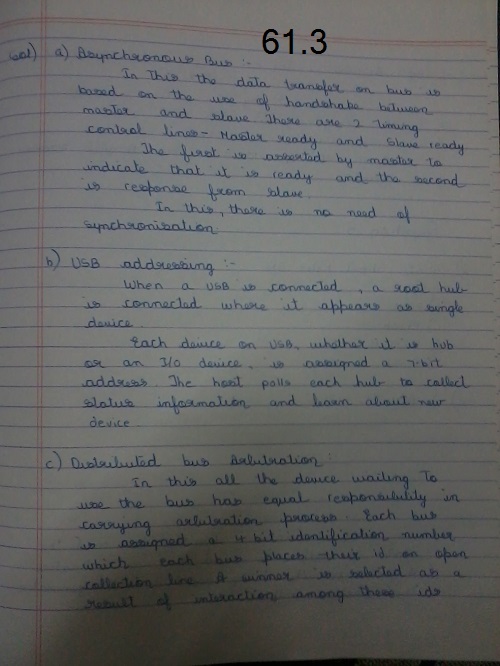 61.3
Sol) a) Asynchronous Bus :-
In this the data transfer on bus is
based on the use of handshake between
master and slave. There are 2 timing
control lines - Master ready and Slave ready
The first is asserted by master to
indicate that it is ready and the second
is response from slave.
In this, there is no need of
synchronisation
b) USB addressing :-
When a USB is connected, a root hub
is connected where it appears as single
device.
Each device on USB, whether it is hub
or an I/O device, is assigned a 7-bit
address. The host polls each hub to collect
status information and learn about new
device
c) Distributed bus Arbitration :
In this all the device waiting To
use the bus has equal responsibility in
carrying arbitration process. Each bus
is assigned a 4 bit identification number
which each bus places their id on open
collection line. A winner is selected as a
result of interaction among these ids